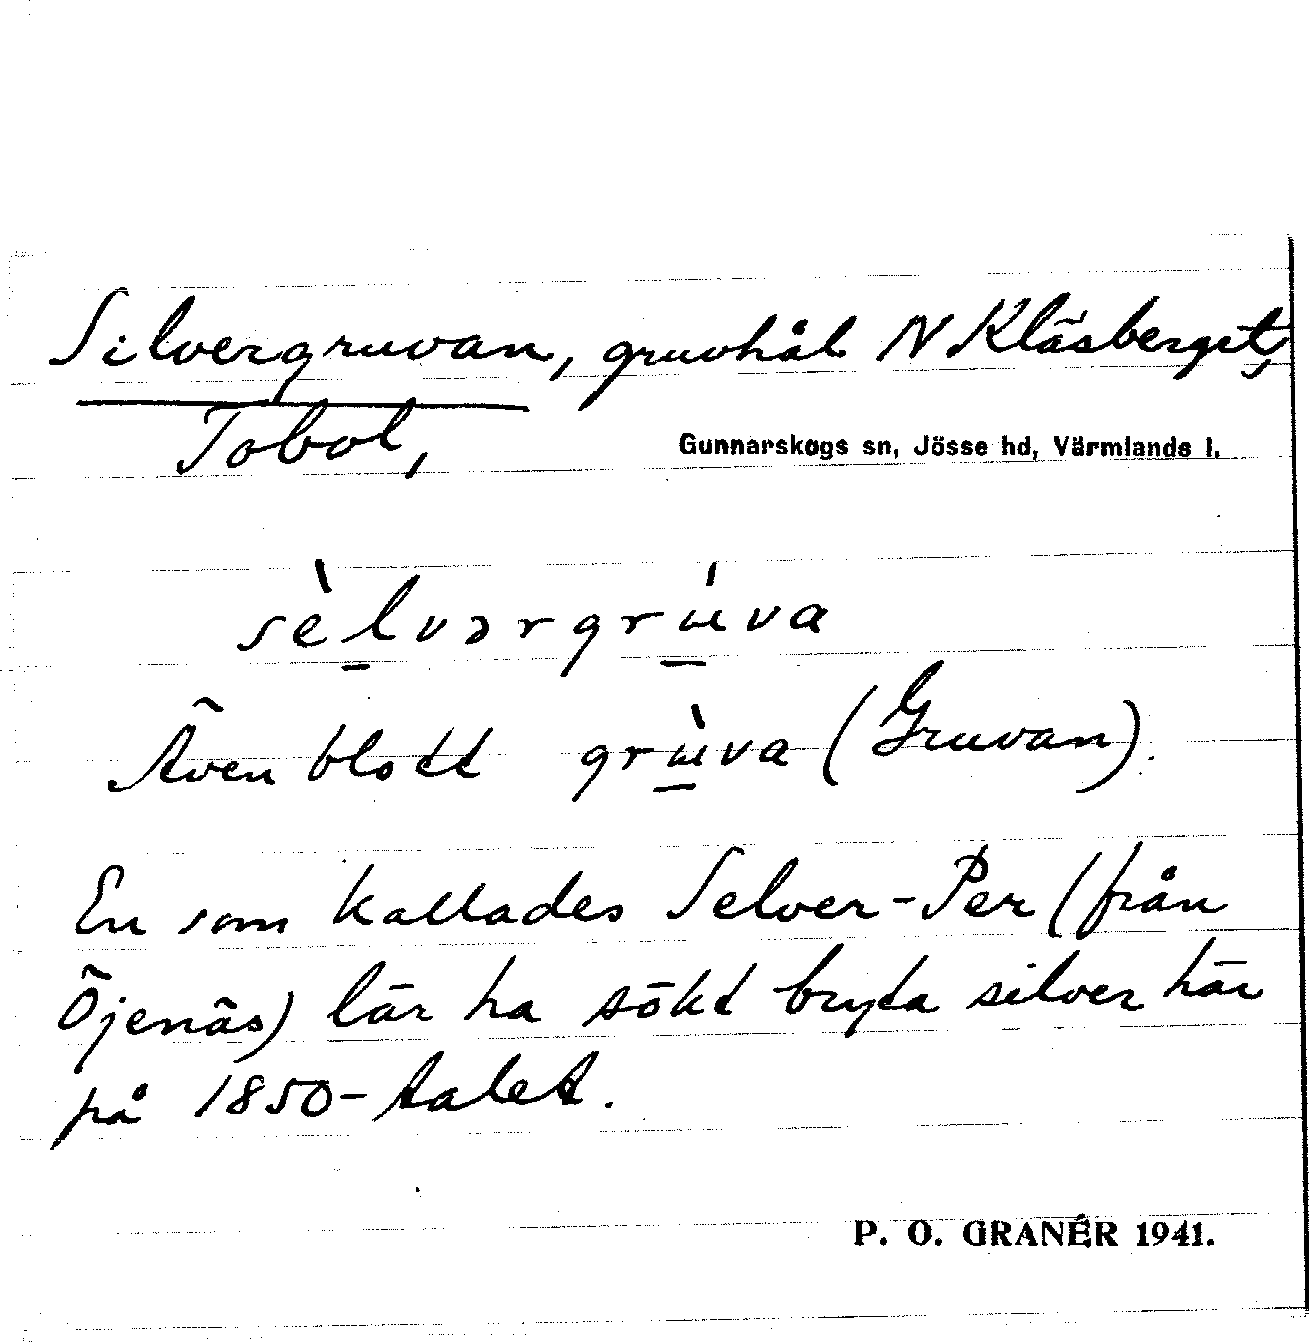 Silvergruvan, gruvhål N Kläsberget,
Tobol,
Gunnarskogs sn, Jösse hd, Värmlands l.
sèlvərgrúva
Även blott grùva (Gruvan).
En som kallades Selver-Per (från
Öjenäs) lär ha sökt bryta silver här
på 1850-talet.
P. O. GRANÉR 1941.